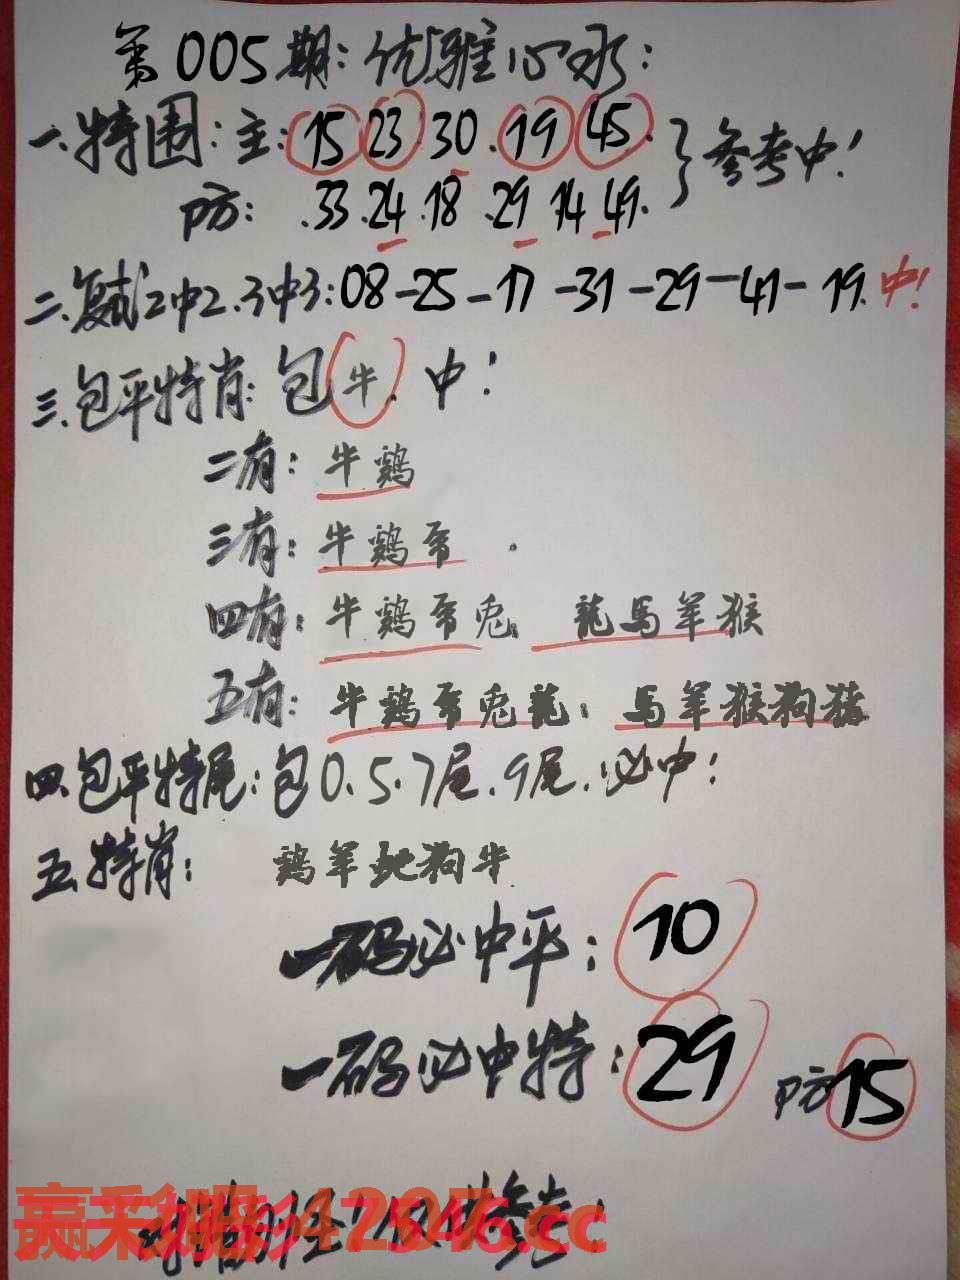 第005期:优雅心水:
一.特围:主:15 23 30.19 45.}参考中!
防:.33.24.18.29 14 49.
二.复式2中2.3中3:08-25-17-31-29-41-19.中!
三.包平特肖:包牛.中!
二有:牛鷄
三有:牛鷄
四有:牛鷄 兎. 龍馬羊猴
五有:牛鷄 兎龍: 馬羊猴狗猪
四.包平特尾:包0.5.7尾.9尾.必中!
五.特肖: 鷄羊 狗牛.
一码必中平:10
一码必中特:29 防15